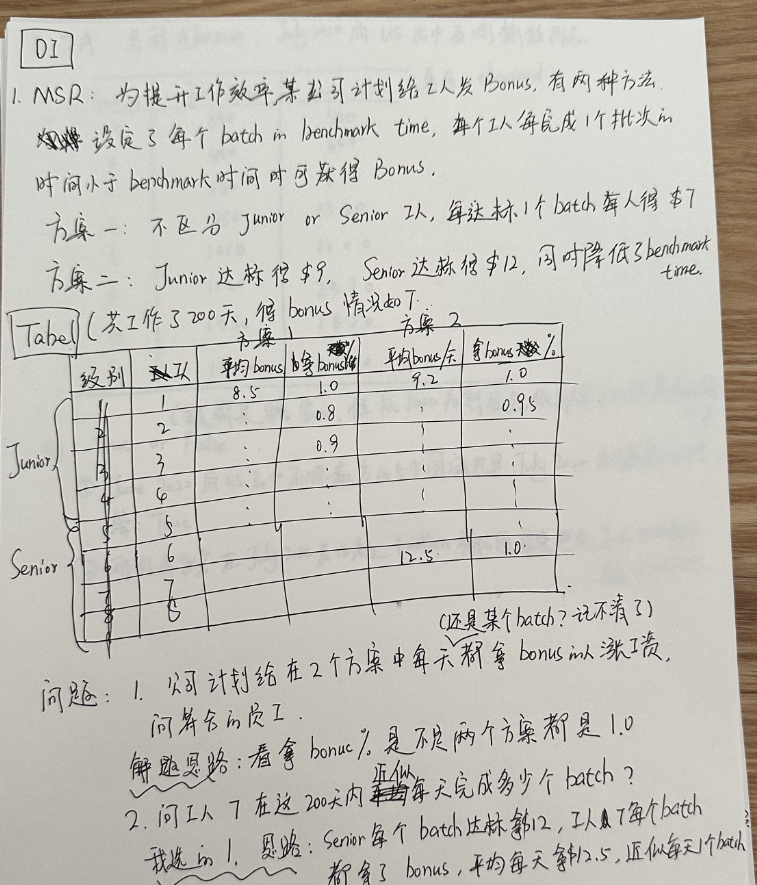 DI
1. MSR: 为提升工作效率,某公司计划给工人发Bonus, 有两种方法.
设定了每个batch的benchmark time, 每个工人每完成1个批次的
时间小于benchmark时间时可获得Bonus.
方案一: 不区分Junior or Senior工人, 每达标1个batch每人得$7
方案二: Junior达标得$9, Senior达标得$12, 同时降低了benchmark
time.
Tabel (共工作了200天, 得bonus情况如下.
方案1 方案2
级别 工人 平均bonus 拿bonus % 平均bonus/天 拿bonus天数%
1 8.5 1.0 9.2 1.0
2 0.8 0.95
Junior 3 0.9
4
5
Senior 6 12.5 1.0
7
8
(还是某个batch? 记不清了)
问题: 1. 公司计划给在2个方案中每天都拿bonus的人涨工资,
问符合的员工.
解题思路: 看拿bonuc%是不是两个方案都是1.0
2. 问工人7在这200天内近似每天完成多少个batch?
我选的1. 思路: Senior每个batch达标拿$12, 工人7每个batch
都拿了bonus, 平均每天拿$12.5, 近似每天1个batch